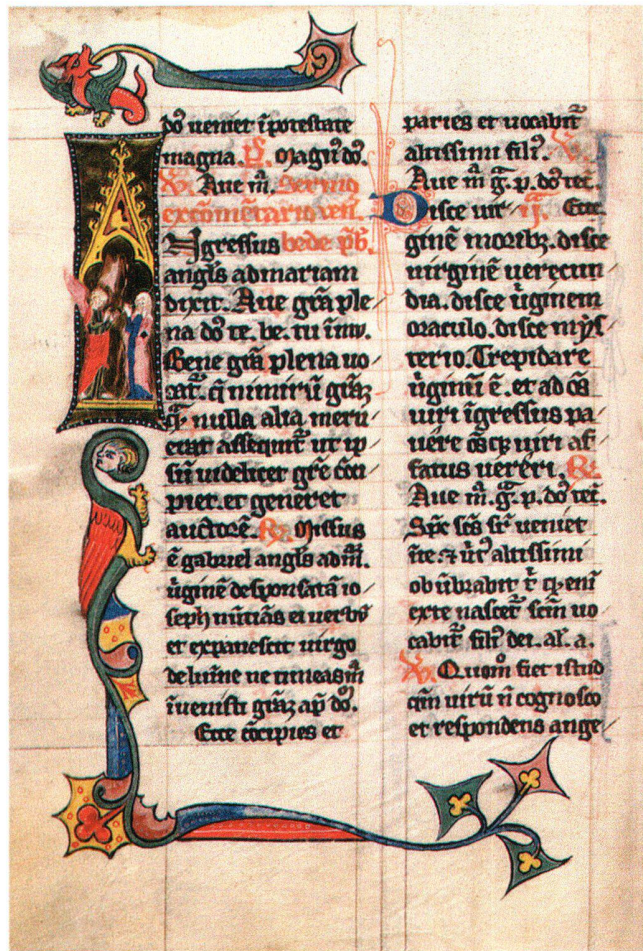 dō ueniet ī potestate
magna. P̄. Magn̄ dō.
V̄. Aue m̄. Sermo
ex cōmētario ven̄.
Ingressus bede p̄b.
angl̄s ad mariam
dixit. Aue grā ple
na dō te. be. tu ī mv̄.
Bene grā plena uo
cat̄. q̄ nimirū grāz
q̄ nulla alia meru
erat assequit̄ ut ip
sū uidelicet grē con
piet. et generet
auctorē. R̄. Missus
ē gabriel angl̄s ad m̄.
ūginē desponsatā io
seph nūtiās ei uerbū
et expauescit uirgo
de lumīe ne timeas m̄
īuenisti grāz ap̄ dō.
Ecce cōcipies et
paries et uocabit̄
altissimi fili᷒. V̄.
Aue m̄ ḡ. p. dō tec̄.
Disce uir ij. Ecce.
ginē moribz. disce
uirginē uerecun
dia. disce ūginem
oraculo. disce mys
terio. Trepidare
ūginū ē. et ad oēs
uiri īgressus pa
uere oēsq uiri af
fatus uereri. R̄.
Aue m̄. ḡ. p. dō tec̄.
Sp̄c sc̄s sr̄ ueniet
ī te. ⁊ ūt᷒ altissimi
obūbrabit t̄ q̄ enī
ex te nascet̄ scm̄ uo
cabit̄ fili᷒ dei. al. a.
V̄. Quom̄ fiet istud
qm̄ uirū n̄ cognosco
et respondens ange